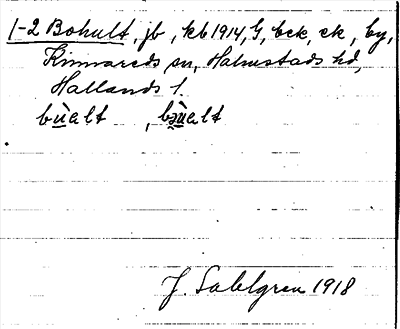 1-2 Bohult, jb, kb 1914, G, bck, ek, by,
Kinnareds sn, Halmstads hd,
Hallands l.
bu̱̇̀alt, bu̱̇̀alt
J. Sahlgren 1918